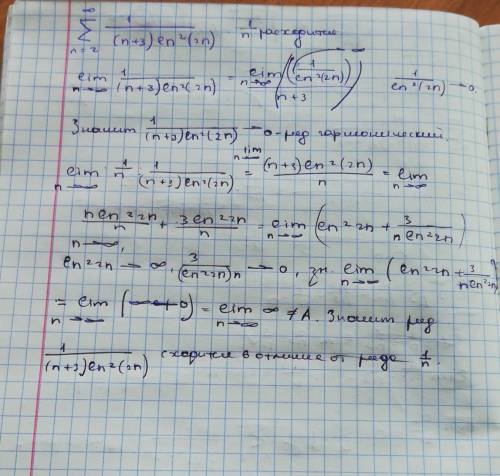 ∞
∑ 1/((n+3) ln²(2n)) 1/n расходится
n=2
lim n→∞ 1/((n+3) ln²(2n)) = lim n→∞ ((1/ln²(2n))/(n+3)) 1/ln²(2n) → 0
Значит 1/((n+3) ln²(2n)) → 0 - ряд гармонический.
lim n→∞ 1/n : 1/((n+3) ln²(2n)) = lim n→∞ (n+3) ln²(2n)/n = lim n→∞
n ln²2n/n + 3 ln²2n/n = lim n→∞ (ln²2n + 3/(n ln²2n))
n→∞,
ln²2n → ∞, 3/((ln²2n)n) → 0, зн. lim n→∞ (ln²2n + 3/(n ln²2n))
= lim n→∞ (∞+0) = lim n→∞ ∞ ≠ A. Значит ряд
1/((n+3) ln²(2n)) сходится в отличие от ряда 1/n.